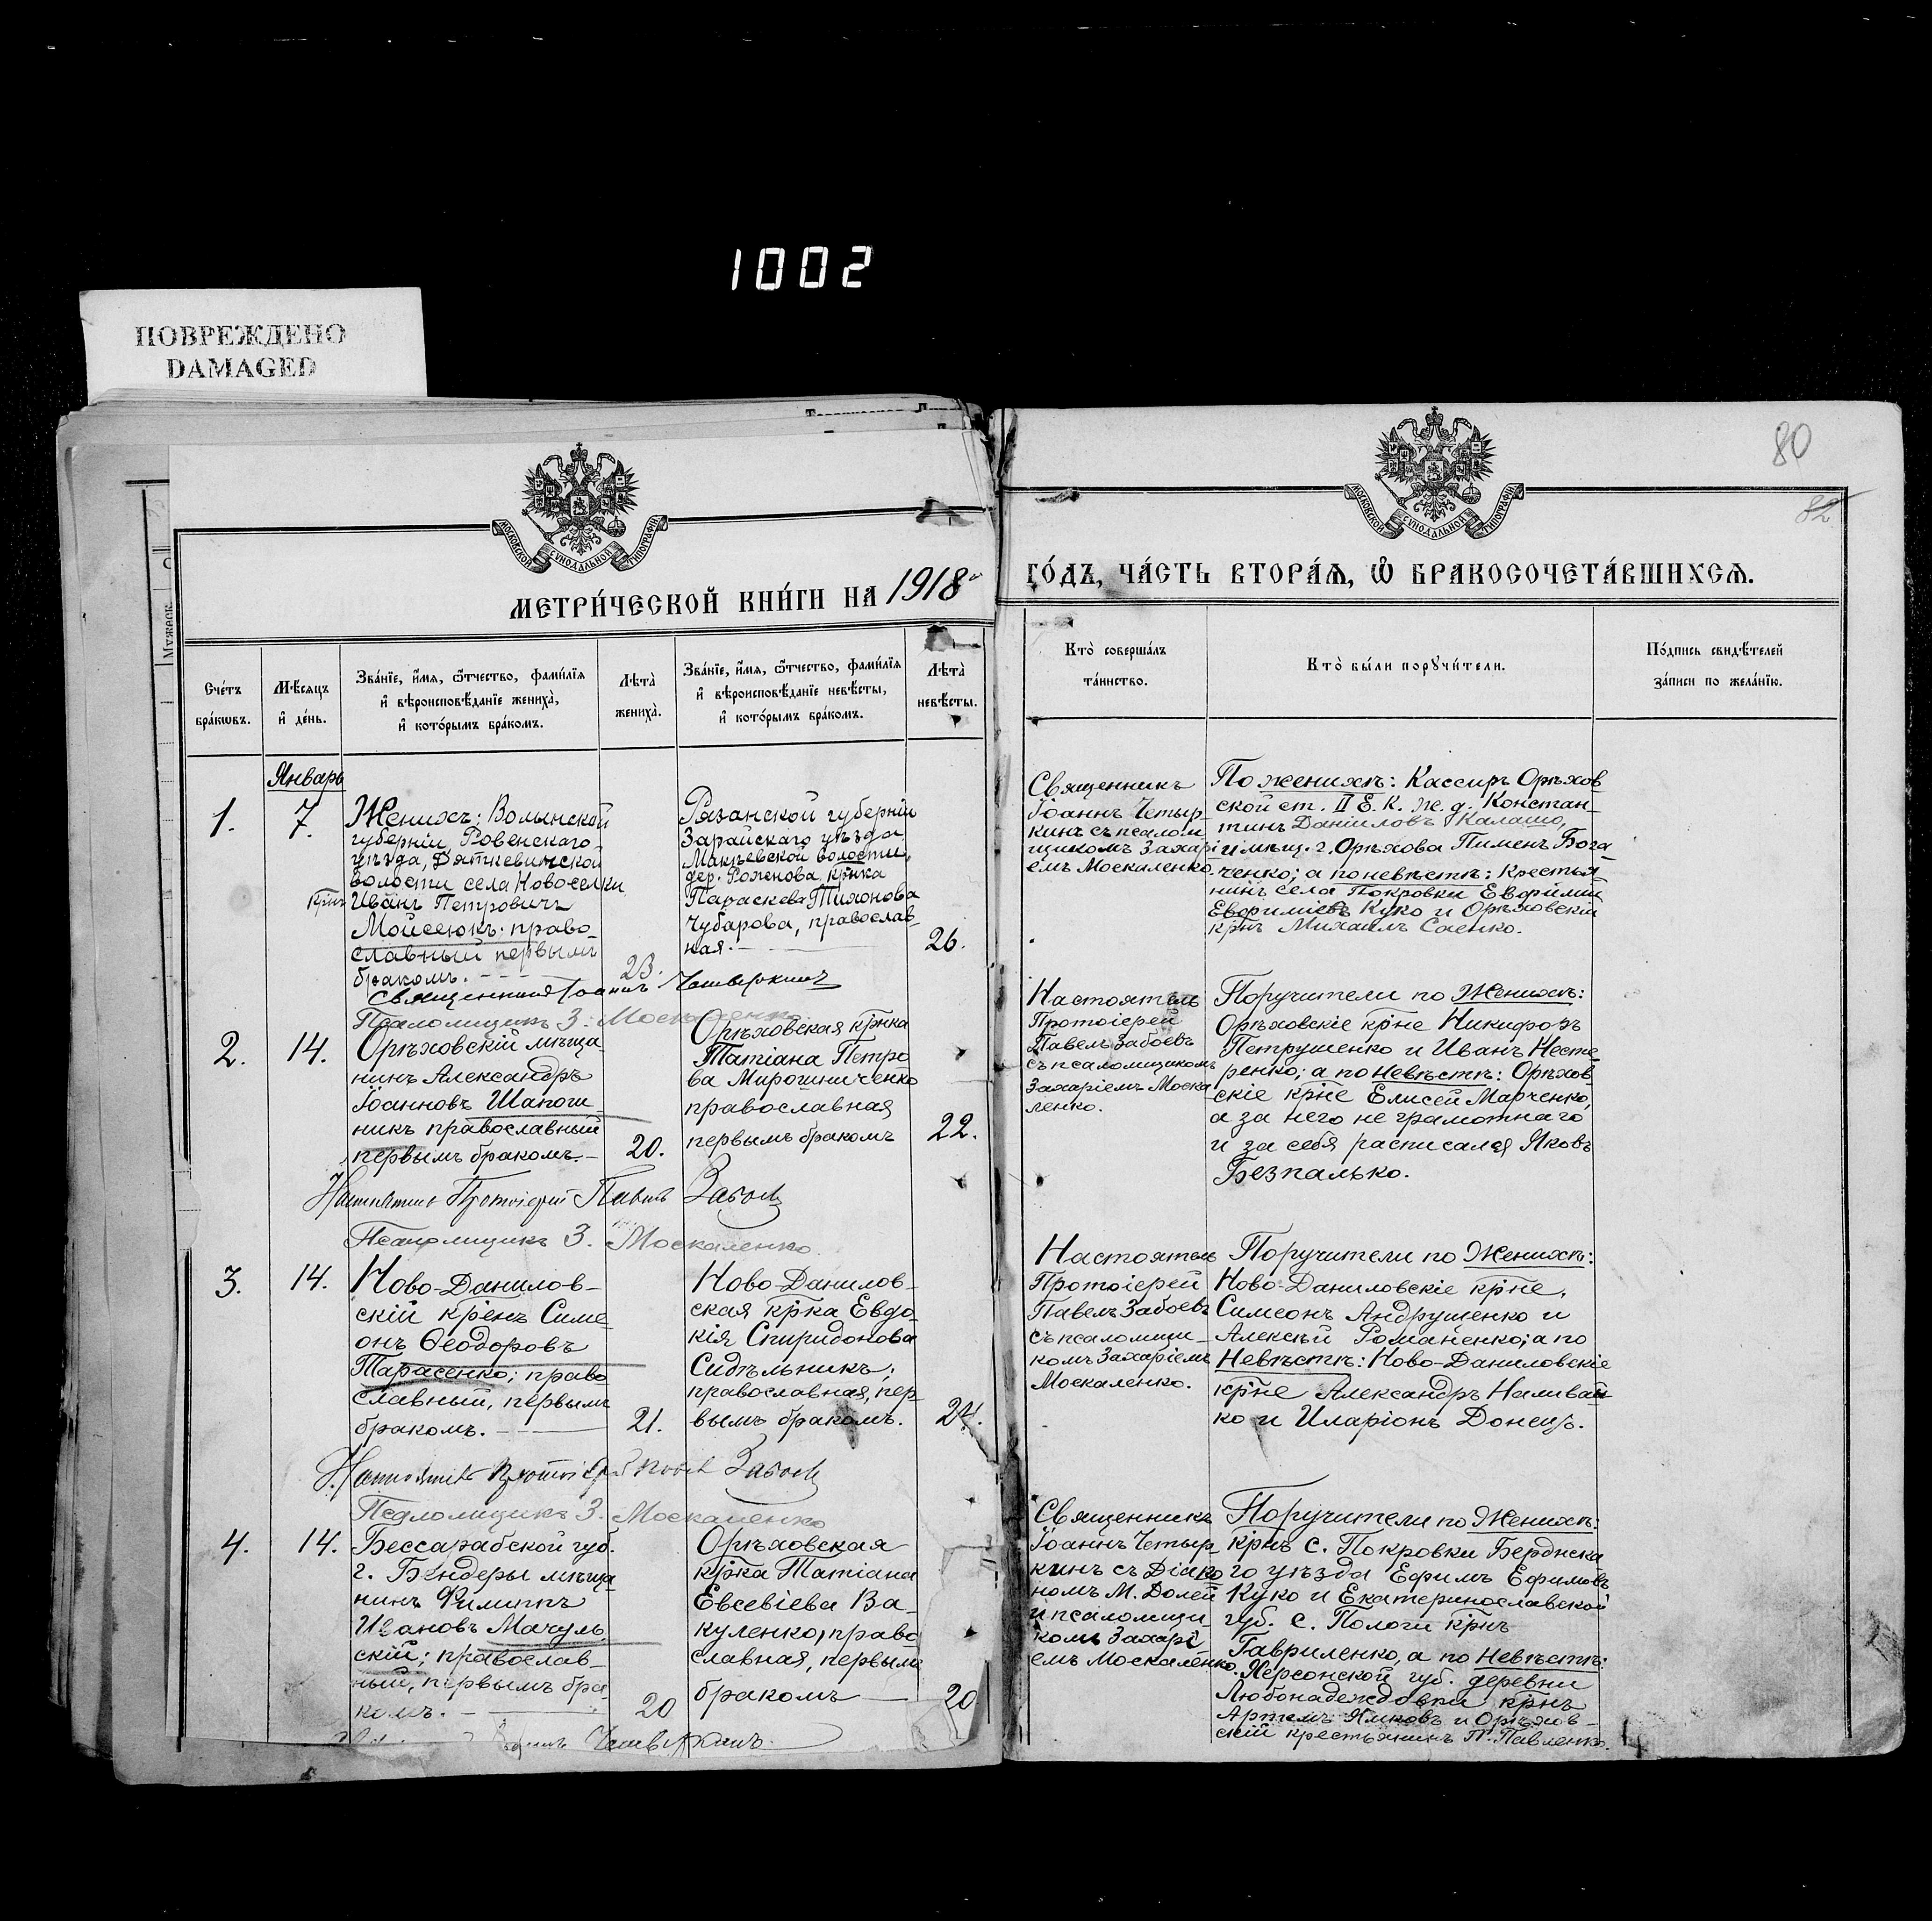 1002
ПОВРЕЖДЕНО
DAMAGED
80
82
МОСКОВСКОЙ СѴНОДАЛЬНОЙ ТИПОГРАФІИ
МОСКОВСКОЙ СѴНОДАЛЬНОЙ ТИПОГРАФІИ
МЕТРИ́ЧЕСКОЙ КНИ́ГИ НА 1918й
ГО́ДЪ, ЧА́СТЬ ВТОРА́Ѧ, Ѽ БРАКОСОЧЕТА́ВШИХСѦ.
Сче́тъ
бра́кѡвъ.
Мѣ́сѧцъ
и҆ де́нь.
Зва́нїе, и҆́мѧ, ѻ҆́тчество, фами́лїѧ
и҆ вѣроисповѣ́данїе жениха̀,
и҆ кото́рымъ бра́комъ.
Лѣта̀
жениха̀.
Зва́нїе, и҆́мѧ, ѻ҆́тчество, фами́лїѧ
и҆ вѣроисповѣ́данїе невѣ́сты,
и҆ кото́рымъ бра́комъ.
Лѣта̀
невѣ́сты.
Кто̀ соверша́лъ
та́инство.
Кто̀ бы́ли порꙋчи́тели.
По́дпись свидѣ́телей
за́писи по жела́нїю.
Январь
1.
7.
Женихъ: Волынской
губерніи, Ровенскаго
уѣзда, Дяткевичской
волости села Новоселки
крнъ Иванъ Петровичъ
Мойсеюкъ. право-
славный первымъ
бракомъ.
23.
Рязанской губерніи
Зарайскаго уѣзда
Макѣевской волости,
дер. Роженова, крнка
Параскева Тихонова
Чубарова, православ-
ная.
26.
Священникъ
Іоаннъ Четыр-
кинъ съ псалом
щикомъ Захарі
емъ Москаленко.
По женихѣ: Кассиръ Орѣхов
ской ст. II Е. К. ж. д. Констан-
тинъ Даніиловъ Калашо,
и мѣщ. г. Орѣхова Пименъ Бога
ченко; а по невѣстѣ: крестья
нинъ села Покровки Евфимій
Евфиміевъ Куко и Орѣховскій
крнъ Михаилъ Саенко.
Священникъ Іоаннъ Четыркинъ
Псаломщикъ З. Москаленко
2.
14.
Орѣховскій мѣща-
нинъ Александръ
Іоанновъ Шапош
никъ православный
первымъ бракомъ.
20.
Орѣховская крнка
Татіана Петро
ва Мирошниченко
православная
первымъ бракомъ
22.
Настоятель
Протоіерей
Павелъ Забоевъ
съ псаломщикомъ
Захаріемъ Моска
ленко.
Поручители по Женихѣ:
Орѣховскіе крне Никифоръ
Петрушенко и Иванъ Несте-
ренко; а по Невѣстѣ: Орѣхов
скіе крне Елисей Марченко,
а за него не грамотнаго
и за себя расписался Яковъ
Безпалько.
Настоятель Протоіерей Павелъ Забоевъ
Псаломщикъ З. Москаленко.
3.
14.
Ново-Данилов-
скій крнъ Симе-
онъ Ѳеодоровъ
Тарасенко; право
славный, первымъ
бракомъ.
21.
Ново-Данилов-
ская крка Евдо-
кія Спиридонова
Сидѣльникъ;
православная, пер-
вымъ бракомъ.
24.
Настоятель
Протоіерей
Павелъ Забоевъ
съ псаломщи-
комъ Захаріемъ
Москаленко.
Поручители по Женихѣ:
Ново-Даниловскіе крне,
Симеонъ Андрущенко и
Алексѣй Романенко; а по
Невѣстѣ: Ново-Даниловскіе
крне Александръ Наливай
ко и Иларіонъ Донецъ.
Настоятель Протоіерей Павелъ Забоевъ
Псаломщикъ З. Москаленко
4.
14.
Бессарабской губ.
г. Бендеры мѣща
нинъ Филиппъ
Ивановъ Мачуль
скій; православ-
ный, первымъ бра-
комъ.
20
Орѣховская
крка Татіана
Евсевіева Ва-
куленко, право
славная, первымъ
бракомъ
20
Священникъ
Іоаннъ Четыр-
кинъ съ Діако
номъ М. Долей
и псаломщи-
комъ Захарі
емъ Москаленко.
Поручители по Женихѣ:
крнъ с. Покровки Берднска
го уѣзда Ефимъ Ефимовъ
Куко и Екатеринославской
губ. с. Пологи крнъ
Гавриленко, а по Невѣстѣ:
Херсонской губ. деревни
Любонадеждовки крнъ
Артемъ Ямковъ и Орѣхов-
скій крестьянинъ П. Павленко.
Четыркинъ.